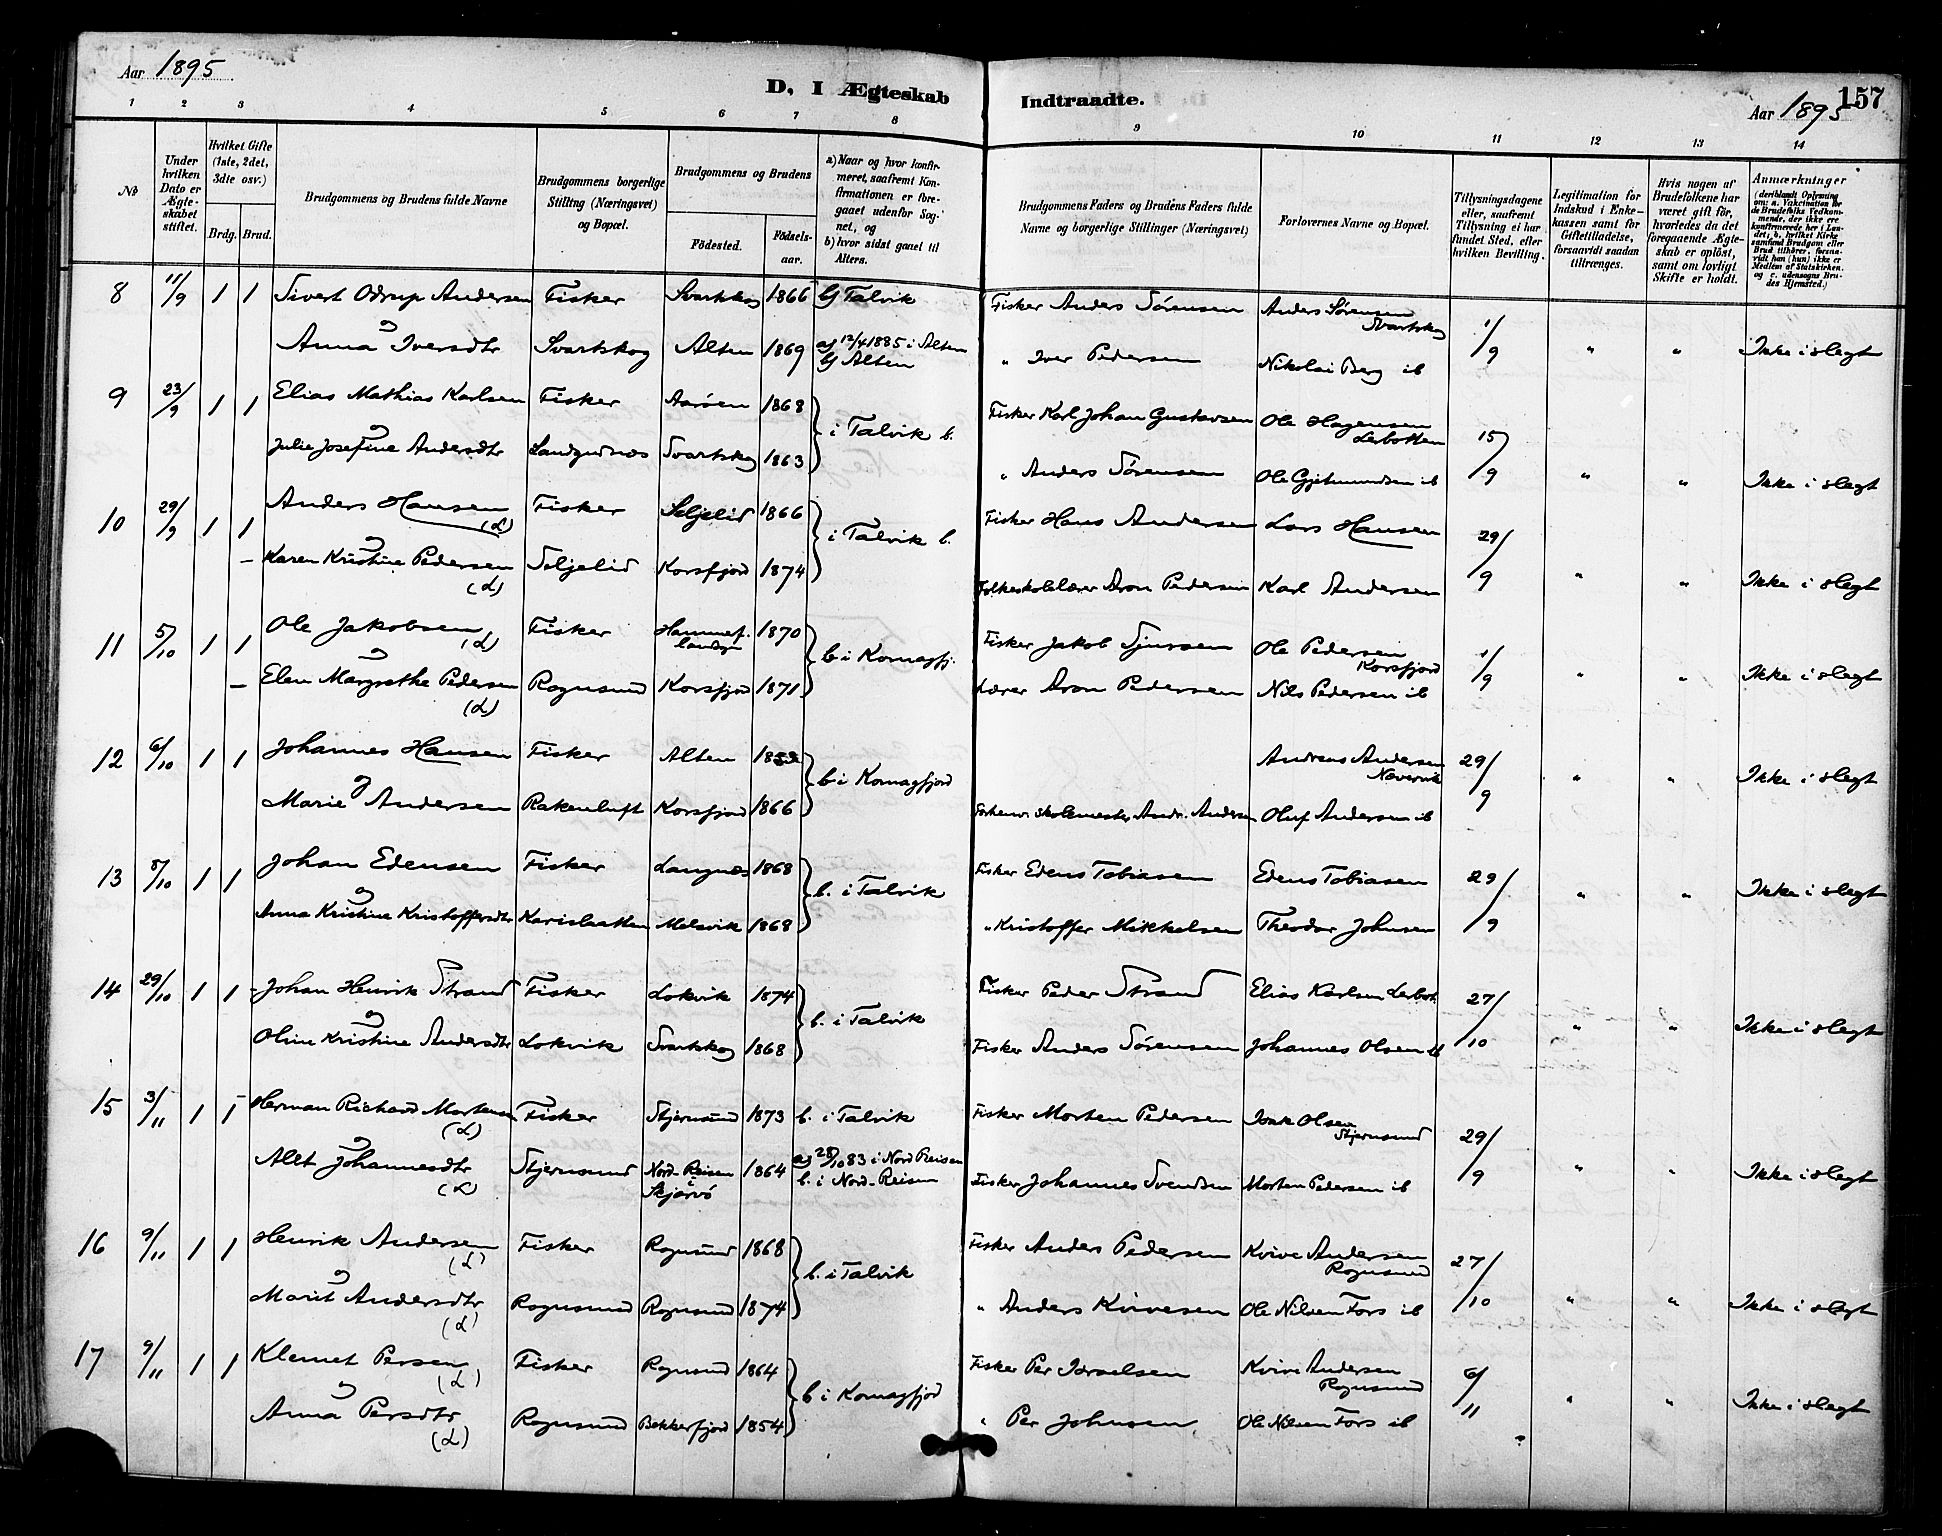 Aar 1895
D, I Ægteskab Indtraadte.
Aar 1895
157
1 2 3 4 5 6 7 8 9 10 11 12 13 14
No
Under hvilken Dato er Ægteskabet stiftet.
Hvilket Gifte (1ste, 2det, 3die osv.)
Brdg. Brud.
Brudgommens og Brudens fulde Navne
Brudgommens borgerlige Stilling (Næringsvei) og Bopæl.
Brudgommens og Brudens
Fødested.
Fødselsaar.
a) Naar og hvor konfirmeret, saafremt Konfirmationen er foregaaet udenfor Sognet, og
b) hvor sidst gaaet til Alters.
Brudgommens Faders og Brudens Faders fulde Navne og borgerlige Stillinger (Næringsvei)
Forlovernes Navne og Bopæl.
Tillysningsdagene eller, saafremt Tillysning ei har fundet Sted, efter hvilken Bevilling.
Legitimation for Indskud i Enkekassen samt for Giftetilladelse, forsaavidt saadan tiltrænges.
Hvis nogen af Brudefolkene har været gift før, hvorledes da det foregaaende Ægteskab er opløst, samt om lovligt Skifte er holdt.
Anmærkninger
(deriblandt Oplysning om: a. Vakcination for de Brudefolks Vedkommende, der ikke ere konfirmerede her i Landet, b. hvilket Kirkesamfund Brudgom eller Brud tilhører, forsaavidt han (hun) ikke er Medlem af Statskirken, og c. udensogns Brudes Hjemsted.)
8 11/9 1 1 Sivert Odrup Andersen Fisker Svartskog 1866 b) Talvik Fisker Anders Sørensen Anders Sørensen Svartskog 1/9
og
Anna Iversdtr Svartskog Alten 1869 a) 12/4 1885 i Alten b) Alten " Iver Pedersen Nikolai Berg ib " " Ikke i slegt
9 23/9 1 1 Elias Mathias Karlsen Fisker Aarøen 1868 i Talvik b. Fisker Karl Johan Gustavsen Ole Hagensen Lerbotten 15/9
og
Julie Josefine Andersdtr Langnæs Svartskog 1863 " Anders Sørensen Ole Gjetmundsen ib " " Ikke i slegt
10 29/9 1 1 Anders Hansen (L) Fisker Seljelid 1866 i Talvik b. Fisker Hans Andersen Lars Hansen 29/9
og
Karen Kristine Pedersen (L) Seljelid Korsfjord 1874 Folkeskolelærer Aron Pedersen Karl Andersen " " Ikke i slegt
11 5/10 1 1 Ole Jakobsen (L) Fisker Hammerf. landsgn 1870 b i Komagfj. Fisker Jakob Sjursen Ole Pedersen Korsfjord 1/9
og
Elen Margrethe Pedersen (L) Rognsund Korsfjord 1871 Lærer Aron Pedersen Nils Pedersen ib " " Ikke i slegt
12 6/10 1 1 Johannes Hansen Fisker Alten b i Komagfjord Andreas Andersen Navervik 29/9
og
Marie Andersen Rakenluft Korsfjord 1866 Forhenv. skolemester Andr. Andersen Oluf Andersen ib " " Ikke i slegt
13 8/10 1 1 Johan Edensen Fisker Langnæs 1868 b. i Talvik Fisker Edens Tobiasen Edens Tobiasen 29/9
og
Anna Kristine Kristoffersdtr Melsvik 1868 " Kristoffer Mikkelsen Theodor Johnsen " " Ikke i slegt
14 29/10 1 1 Johan Henrik Strand Fisker Lokvik 1874 b. i Talvik Fisker Peder Strand Elias Karlsen Lerbot. 27/10
og
Oline Kristine Andersdtr Lokvik Svartskog 1868 Fisker Anders Sørensen Johannes Olsen ib " " Ikke i slegt
15 3/11 1 1 Herman Richard Mortensen (L) Fisker Stjernsund 1873 b. i Talvik Fisker Morten Pedersen Isak Olsen Stjernsund 29/9
og
Alet Johannesdtr (L) Stjernsund Nord-Reisen i Skjervø 1864 a) 28/10 83 i Nord Reisen b. i Nord-Reisen Fisker Johannes Svendsen Morten Pedersen ib " " Ikke i slegt
16 9/11 1 1 Henrik Andersen (L) Fisker Rognsund 1868 b. i Talvik Fisker Anders Pedersen Kvive Andersen Rognsund 27/10
og
Marit Andersdtr (L) Rognsund Rognsund 1874 " Anders Kvivesen Ole Nilsen Fors ib " " Ikke i slegt
17 9/11 1 1 Klemet Persen (L) Fisker Rognsund 1864 b i Komagfjord Fisker Per Isrselsen Kvive Andersen Rognsund 6/11
og
Anna Persdtr (L) Rognsund Bekkerfjord 1854 " Per Johnsen Ole Nilsen Fors ib " " Ikke i slegt